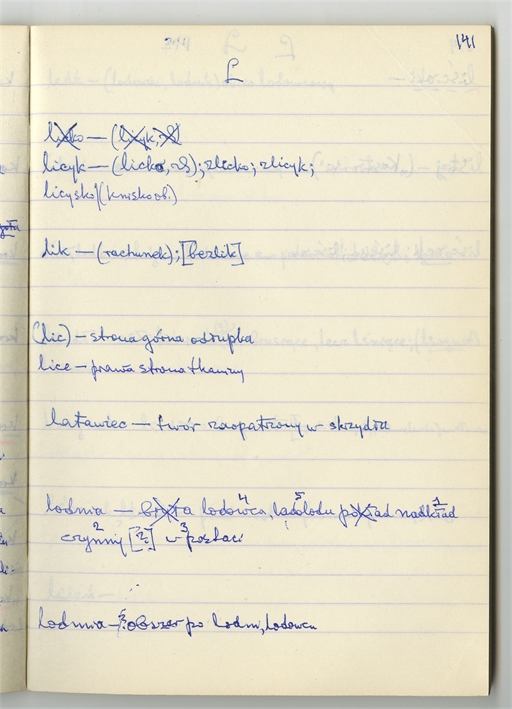 141
L
licyk — (licko, zł); zlicko; zlicyk;
licysko (knisko ob.)
lik — (rachunek); [bezlik]
(lic) — strona górna odrupka
lice — prawa strona tkaniny
latawiec — twór zaopatrzony w skrzydła
lodnia — lodowca, lądolodu nadkład
czynny [?] w postaci
Lodnia — obszar po lodni, lodowcu